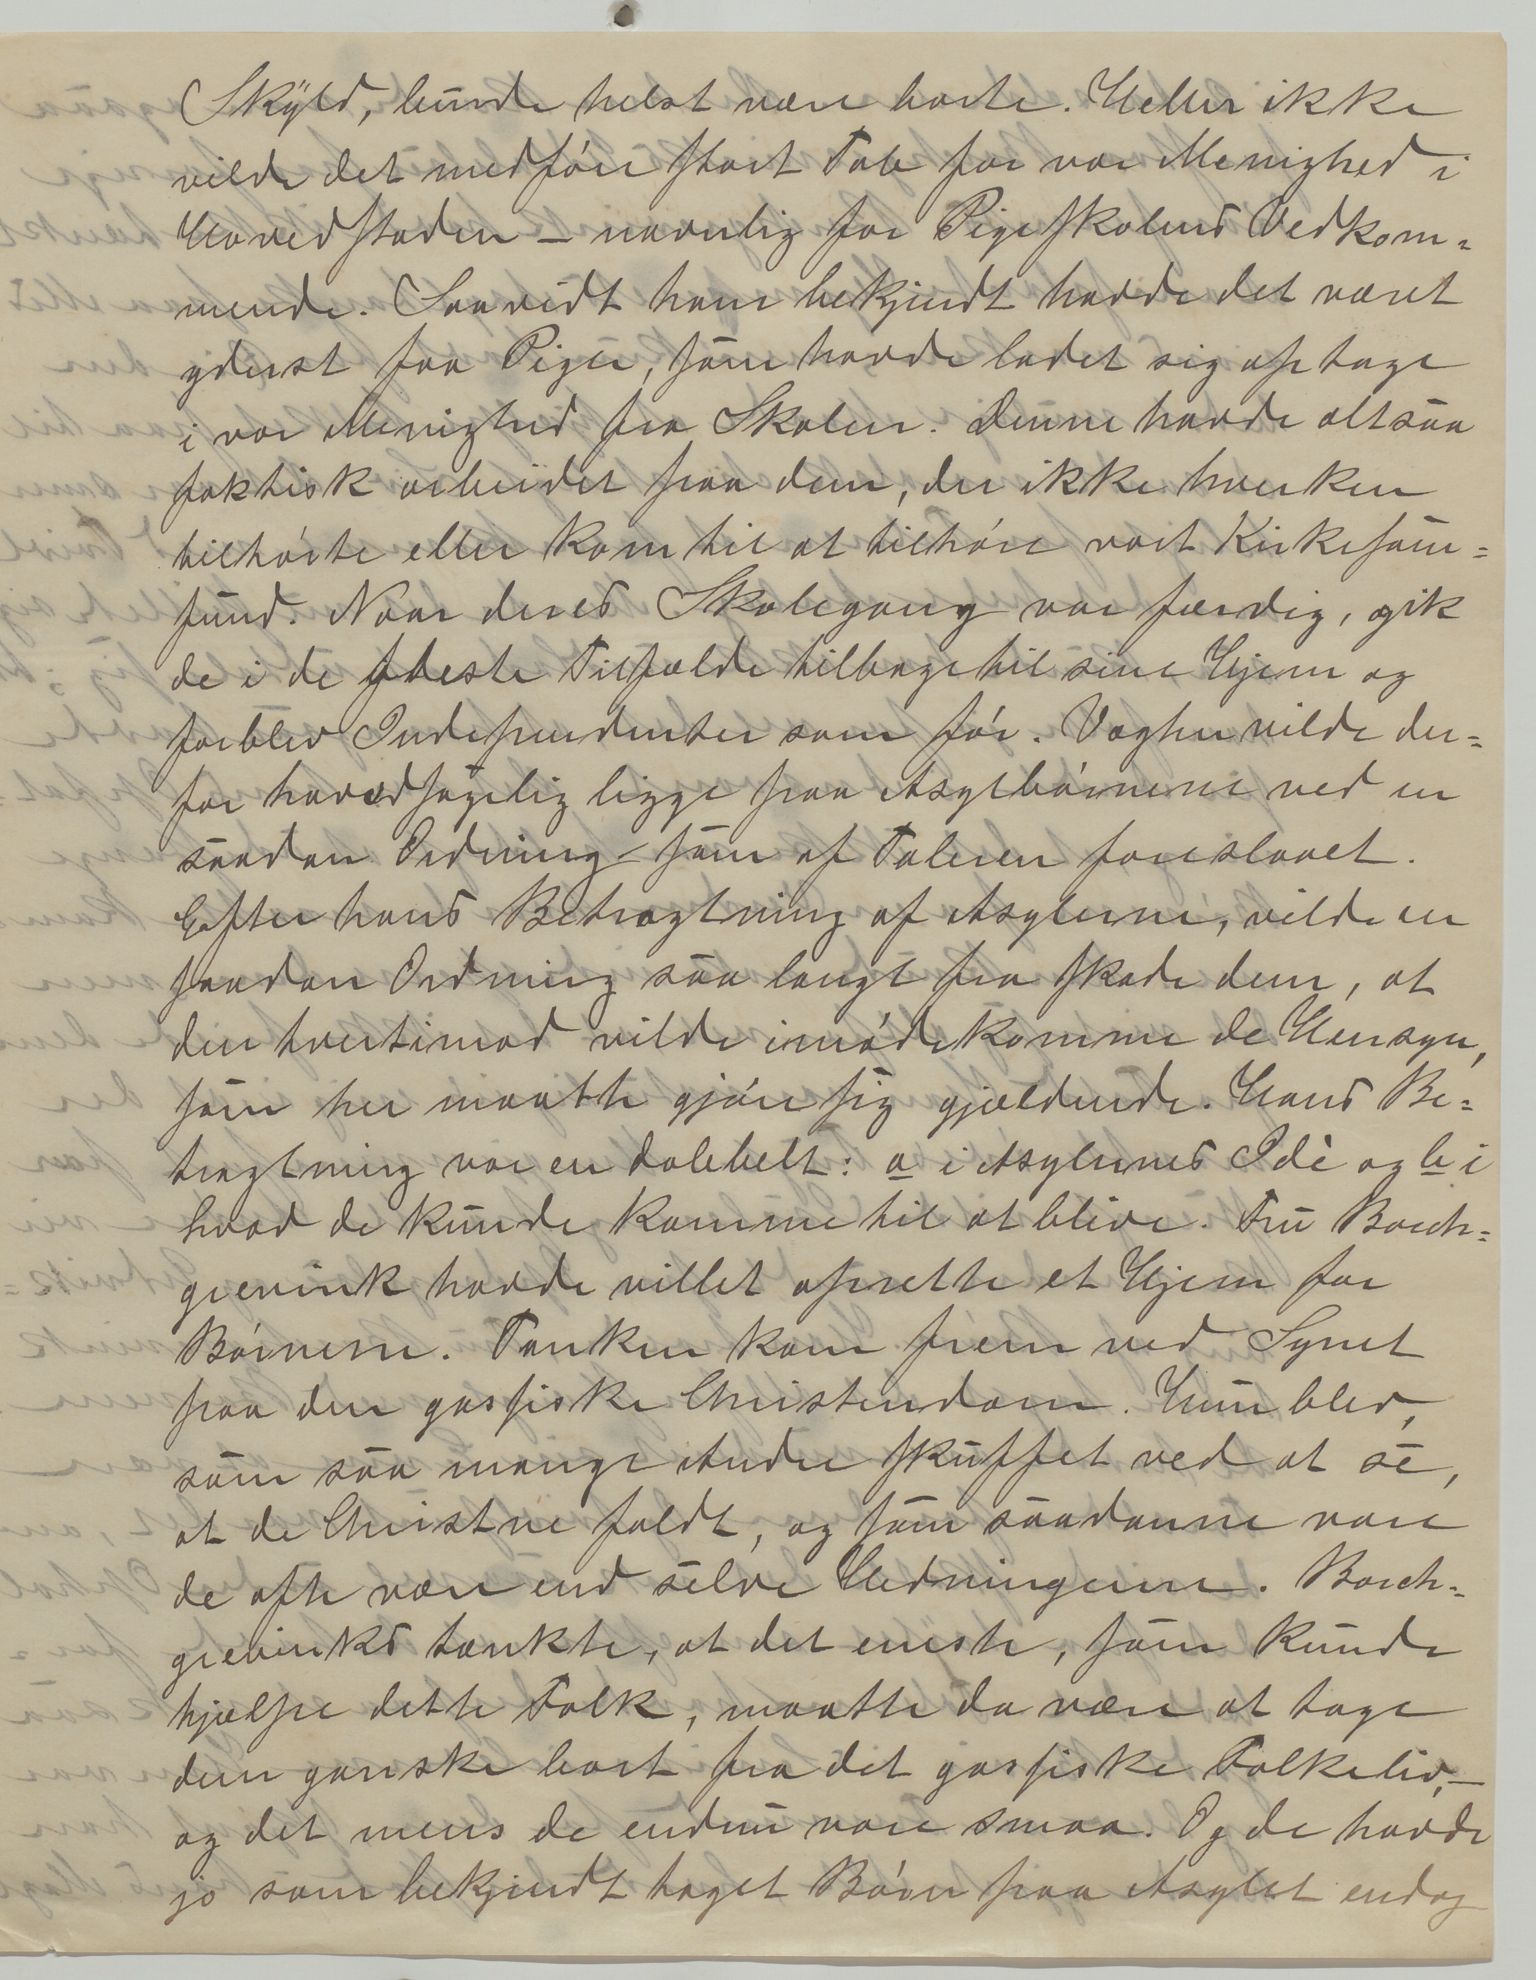 Skyld, burde helst være borte. Heller ikke
vilde det medføre stort Tab for vor Menighed i
Hovedstaden – navnlig for Pigeskolens Vedkom=
mende. Saavidt ham bekjendt havde det været
yderst faa Piger, som havde ladet sig optage
i vor Menighed fra Skolen. Denne havde altsaa
faktisk arbeidet paa dem, der ikke hverken
tilhørte eller kom til at tilhøre vort Kirkesam=
fund. Naar deres Skolegang var færdig, gik
de i de fleste Tilfælde tilbage til sine Hjem og
forblev Independenter som før. Vægten vilde der=
for hovedsagelig ligge paa Asylbørnene ved en
saadan Ordning – som af Taleren foreslaaet.
Efter hans Betragtning af Asylerne, vilde en
saadan Ordning saa langt fra skade dem, at
den tvertimod vilde imødekomme de Hensyn,
som her maatte gjøre sig gjældende. Hans Be=
tragtning var en dobbelt: a i Asylernes Idè og b i
hvad de kunde komme til at blive. Fru Borch=
grevink havde villet oprette et Hjem for
Børnene. Tanken kom frem ved Synet
paa den gassiske Christendom. Hun blev,
som saa mange Andre skuffet ved at se,
at de Christne faldt, og som saadanne vare
de ofte værre end selve Hedningerne. Borch=
grevinks tænkte, at det eneste, som kunde
hjælpe dette Folk, maatte da være at tage
dem ganske bort fra det gassiske Folkeliv, –
og det mens de endnu vare smaa. Og de havde
jo som bekjendt taget Børn paa Asylet endog